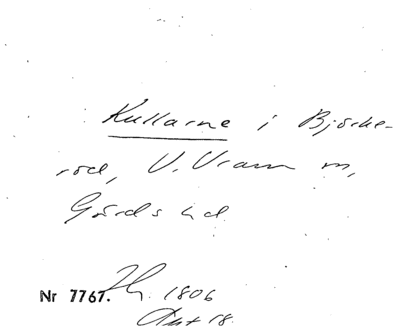 Kullarne i Björke-
röd, V. Vram m,
Gärds hd.
Nr 7767. Th. 1806
Akt 18.